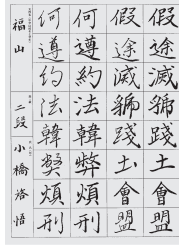 假途滅虢踐土會盟
假途滅虢踐土會盟
何遵約法韓弊煩刑
何遵約法韓弊煩刑
福山 二段 小橋洛悟